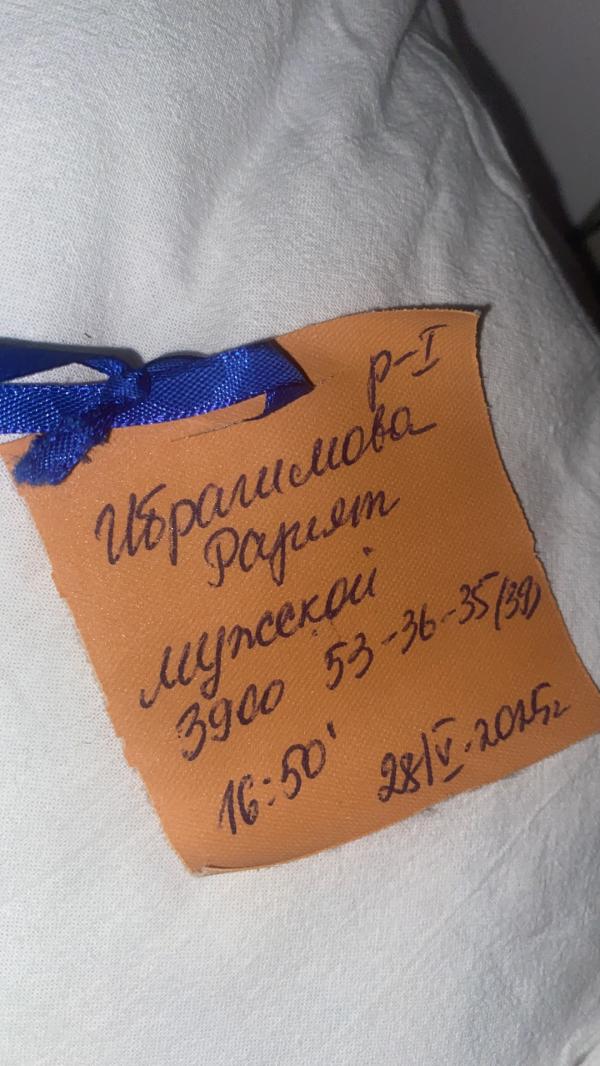 р-I
Ибрагимова
Рацият
мужской
3900 53-36-35(39)
16:50'
28/V-2025г